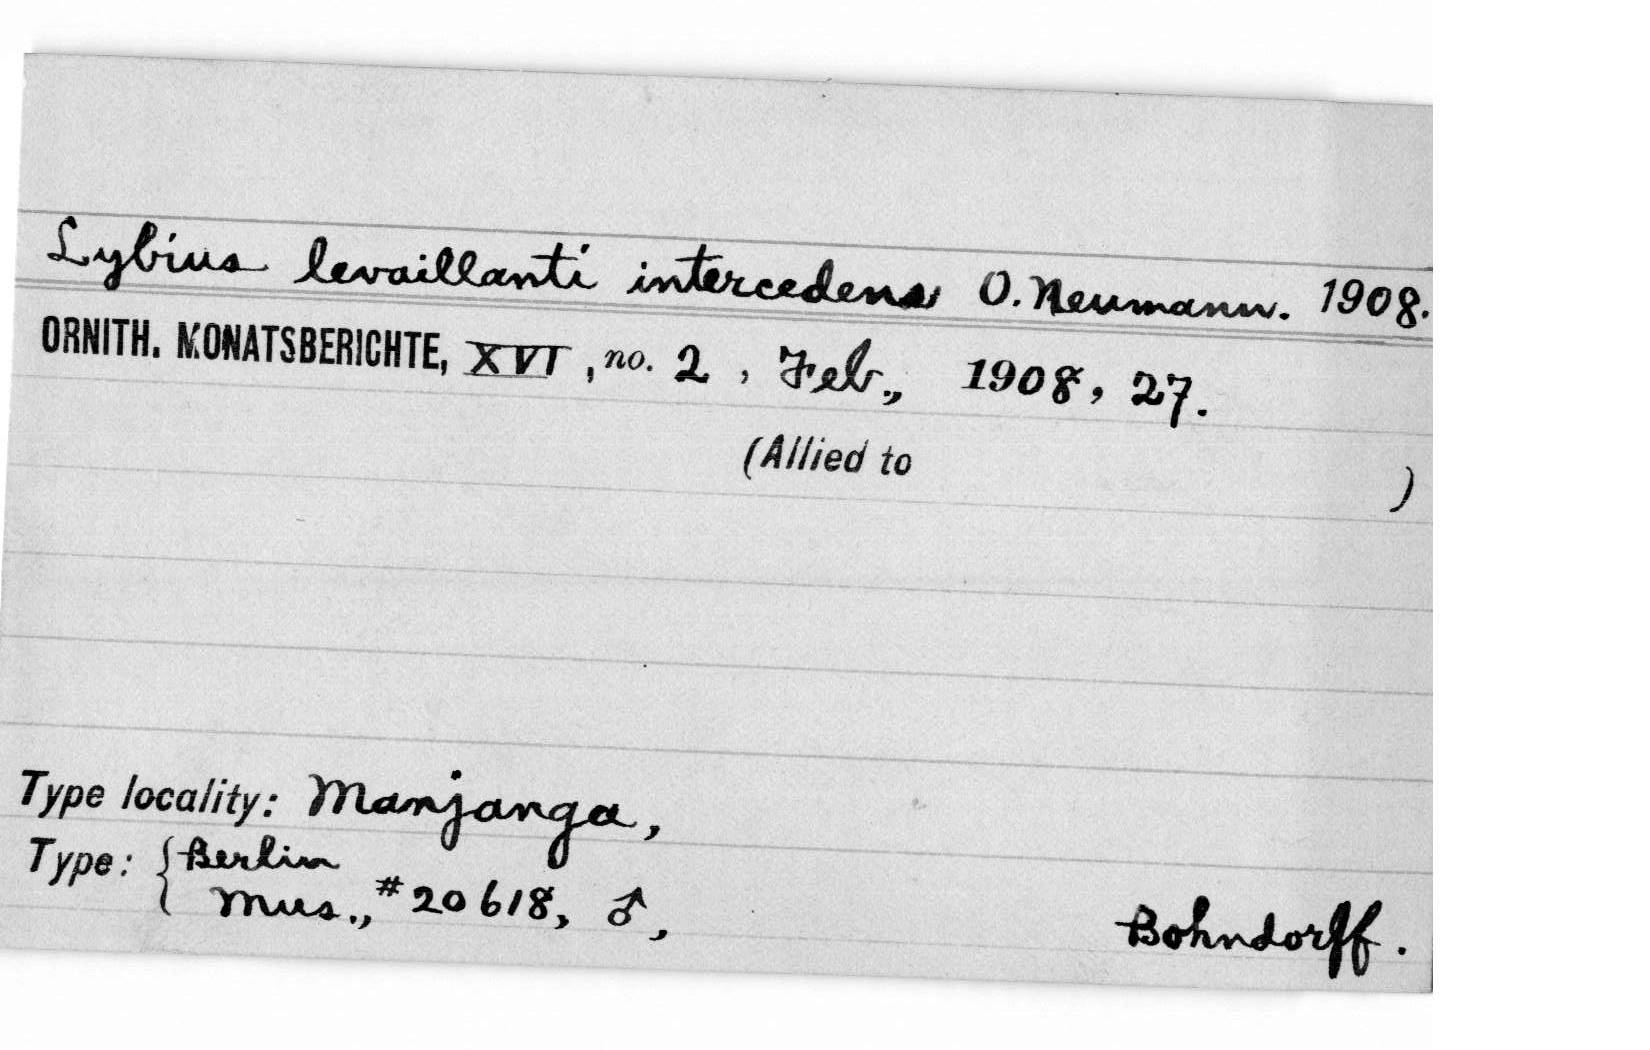 Lybius levaillanti intercedens O. Neumann. 1908.
ORNITH. MONATSBERICHTE, XVI, no. 2, Feb., 1908, 27.
(Allied to )
Type locality: Manjanga,
Type: { Berlin
Mus., #20618, ♂,
Bohndorff.